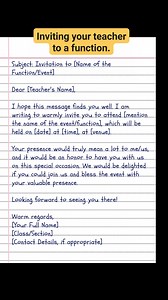 Inviting your teacher
to a function.
Subject: Invitation to [Name of the
Function/Event]
Dear [Teacher's Name],
I hope this message finds you well. I am
writing to warmly invite you to attend [mention
the name of the event/function], which will be
held on [date] at [time], at [venue].
Your presence would truly mean a lot to me/us,
and it would be an honor to have you with us
on this special occasion. We would be delighted
if you could join us and bless the event with
your valuable presence.
Looking forward to seeing you there!
Warm regards,
[Your Full Name]
[Class/Section]
[Contact Details, if appropriate]